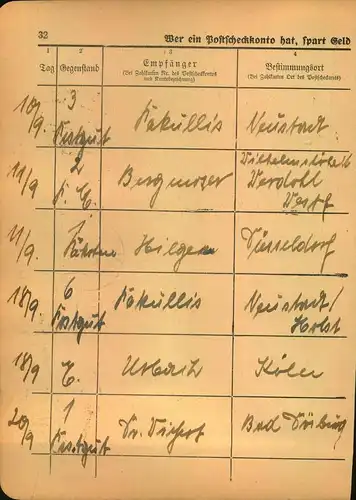 32
Wer ein Postscheckkonto hat, spart Geld
1
2
3
4
Tag
Gegenstand
Empfänger
(Bei Zahlkarten Nr. des Postscheckkontos
und Kontobezeichnung)
Bestimmungsort
(Bei Zahlkarten Ort des Postscheckamts)
10/9
3
Postgut
Pakullis
Neustadt
11/9
2
P. E.
Bergmoser
Werdohl
Westf
11/9.
1
Hilgen
Düsseldorf
18/9
6
Postgut
Pakullis
Neustadt/
Holst
18/9
E.
Urbach
Köln
20/9
1
Postgut
Dr.
Bad Driburg